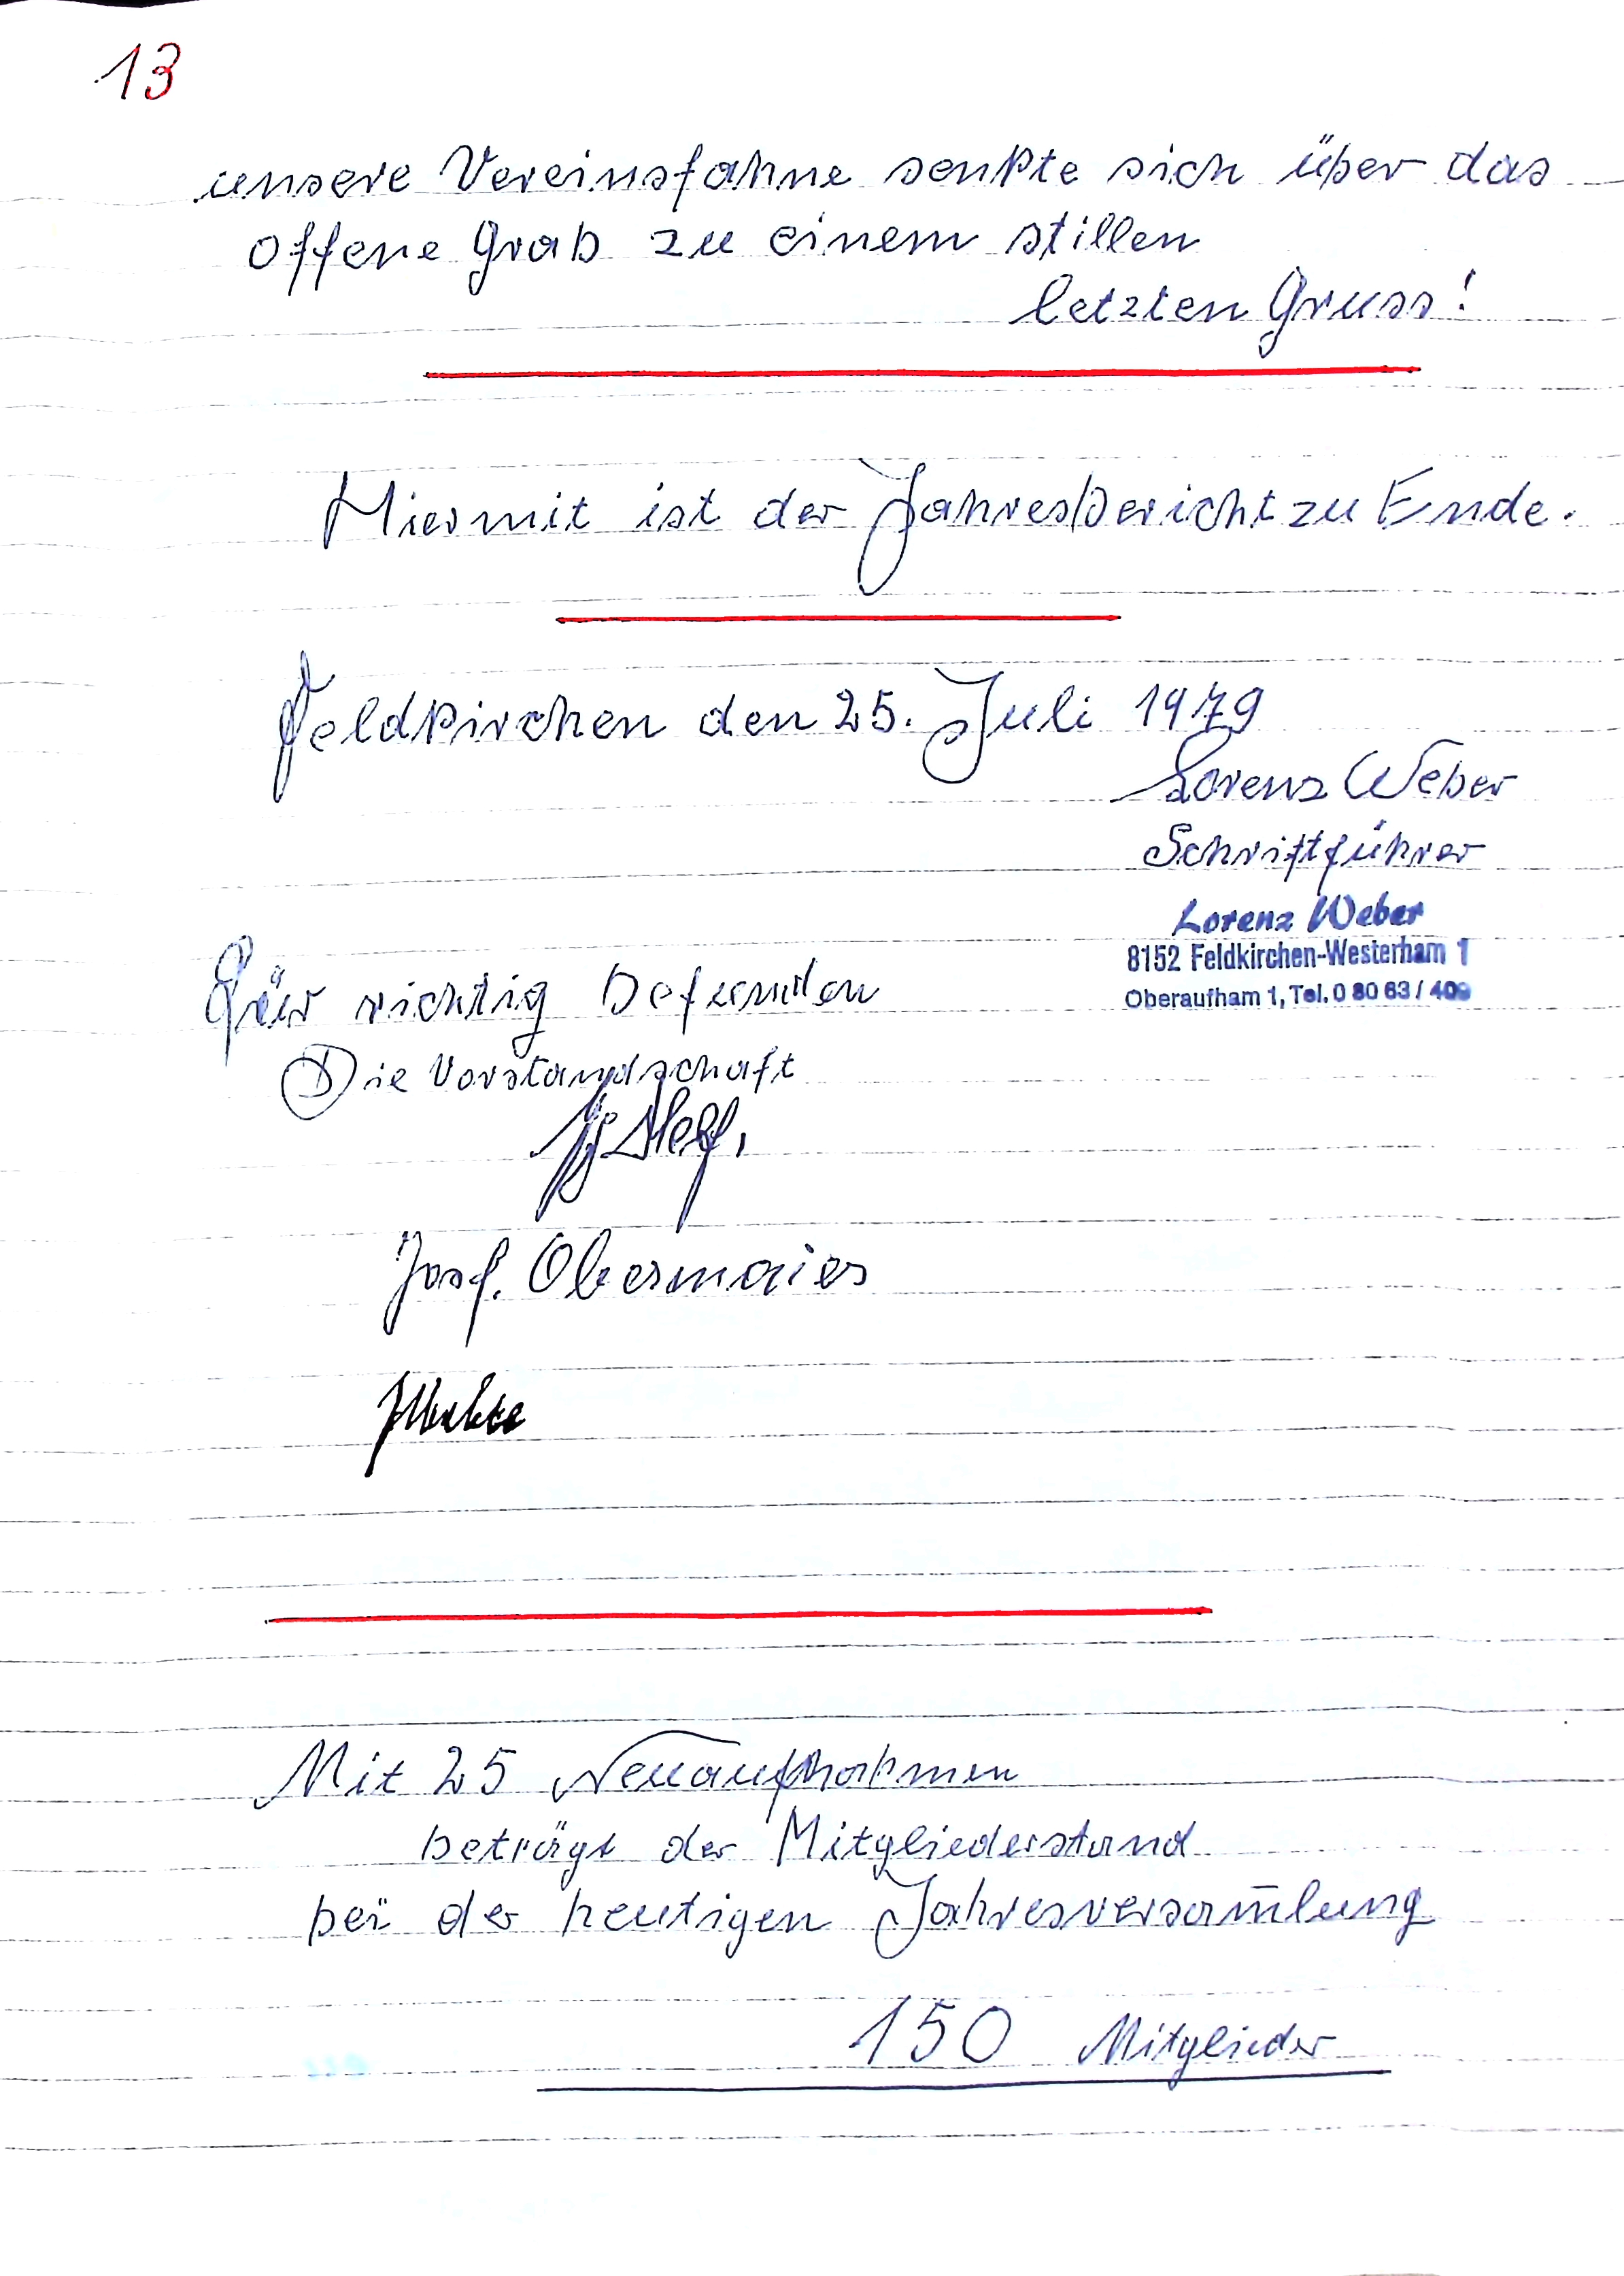 13
unsere Vereinsfahne senkte sich über das
offene Grab zu einem stillen
letzten Gruss!
Hiermit ist der Jahresbericht zu Ende.
Feldkirchen den 25. Juli 1979
Lorenz Weber
Schriftführer
Lorenz Weber
8152 Feldkirchen-Westerham 1
Oberaufham 1, Tel. 0 80 63 / 409
Für richtig befunden
Die Vorstandschaft
Josf. Obermaier
Mit 25 Neuaufnahmen
beträgt der Mitgliederstand
bei der heutigen Jahresversam̅lung
150 Mitglieder